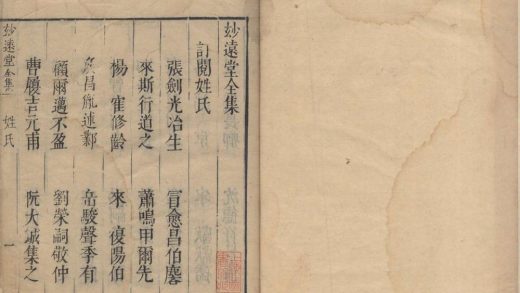 玅遠堂全集
訂閱姓氏
張劍光冶生 冒愈昌伯麐
來斯行道之 蕭鳴甲爾先
楊寉修齡 來復陽伯
昌胤述 岳駿聲季有
顧爾邁不盈 劉榮嗣敬仲
曹履吉元甫 阮大鋮集之
玅遠堂全集 姓氏 一